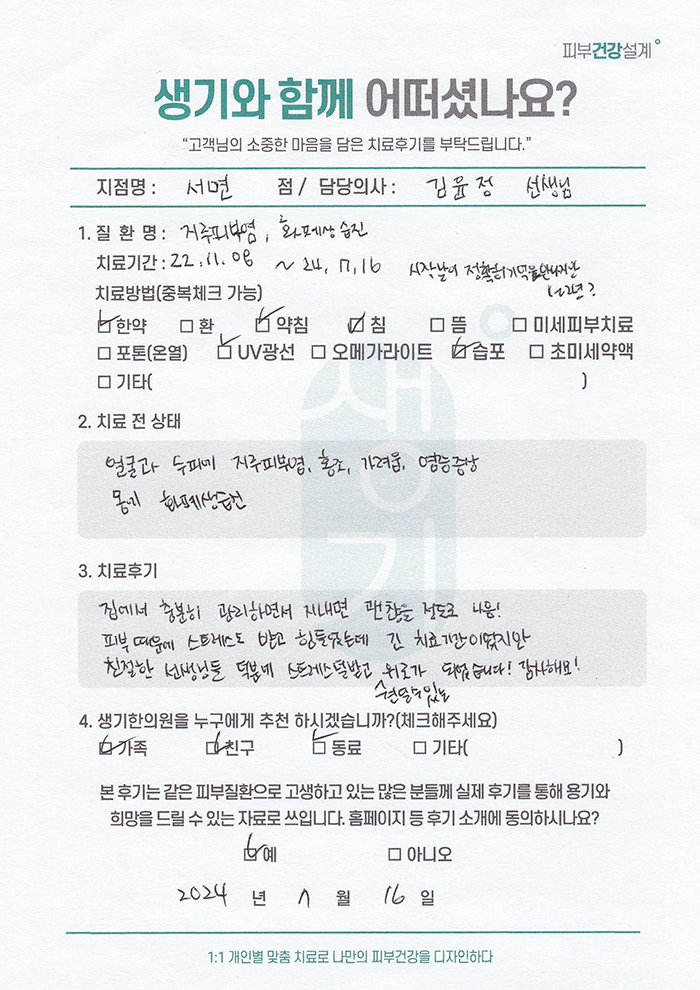 피부건강설계
생기와 함께 어떠셨나요?
“고객님의 소중한 마음을 담은 치료후기를 부탁드립니다.”
지점명 : 서면 점 / 담당의사 : 김윤정 선생님
1. 질 환 명 : 지루피부염, 화폐상습진
치료기간 : 22.11.08 ~ 24.7.16 시작날이 정확히 기억은 안나지만
1~2년?
치료방법(중복체크 가능)
한약 환 약침 침 뜸 미세피부치료
포톤(온열) UV광선 오메가라이트 습포 초미세약액
기타( )
2. 치료 전 상태
얼굴과 두피에 지루피부염, 홍조, 가려움, 염증증상
몸에 화폐상습진
생기
3. 치료후기
집에서 충분히 관리하면서 지내면 괜찮을 정도로 나음!
피부때문에 스트레스도 받고 힘들었는데 긴 치료기간이었지만
친절한 선생님들 덕분에 스트레스덜받고 위로가 되었습니다! 감사해요!
견딜수있는
4. 생기한의원을 누구에게 추천 하시겠습니까?(체크해주세요)
가족 친구 동료 기타( )
본 후기는 같은 피부질환으로 고생하고 있는 많은 분들께 실제 후기를 통해 용기와
희망을 드릴 수 있는 자료로 쓰입니다. 홈페이지 등 후기 소개에 동의하시나요?
예 아니오
2024 년 7 월 16 일
1:1 개인별 맞춤 치료로 나만의 피부건강을 디자인하다